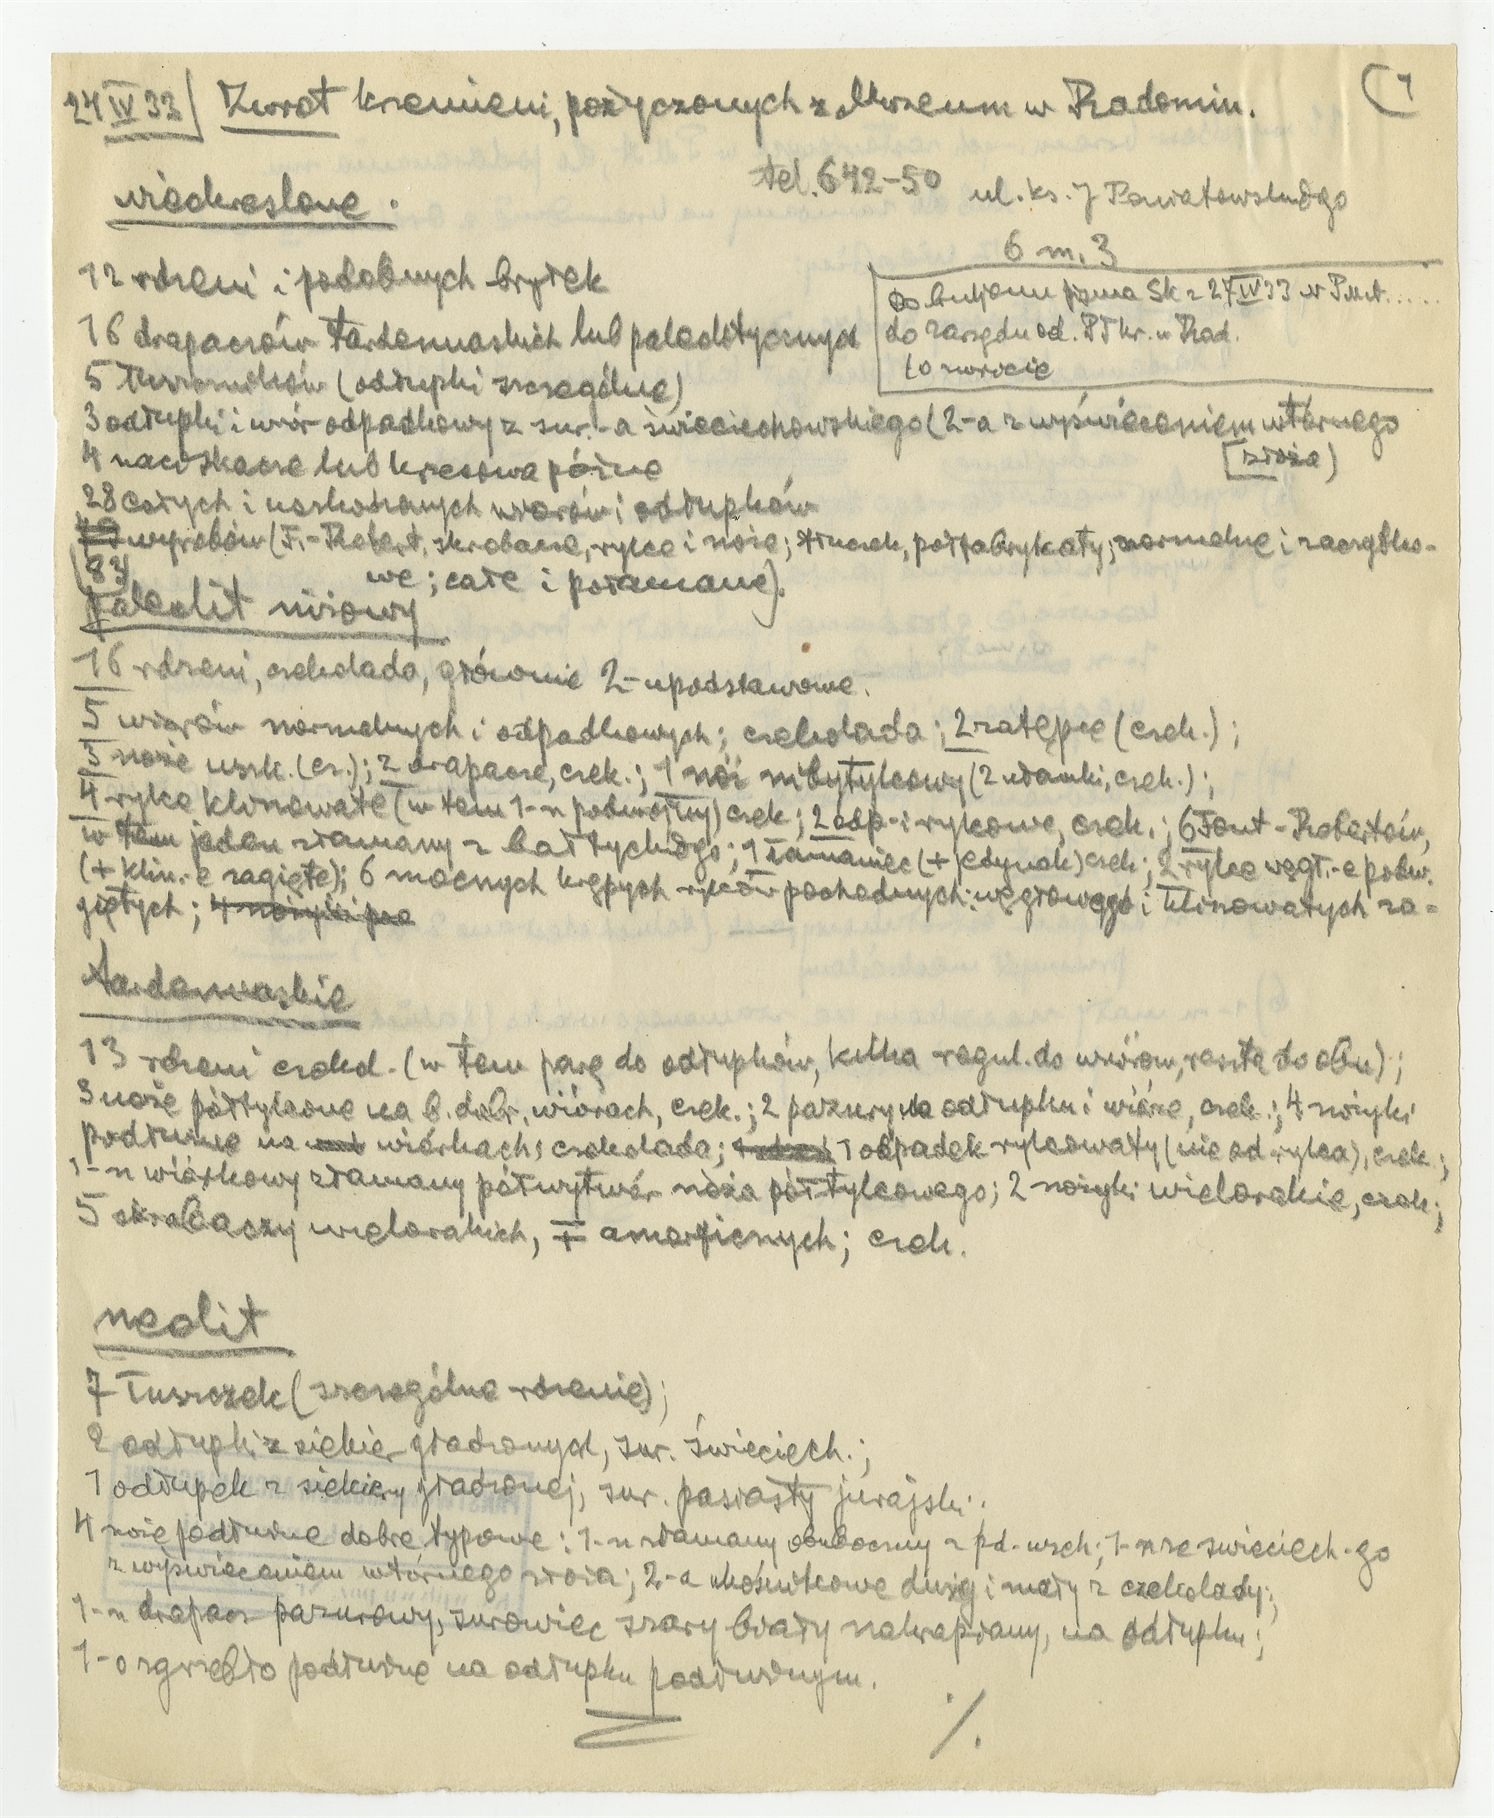 24 IV 33) Zwrot krzemieni, pożyczonych z Muzeum w Radomiu.
(1
tel. 642-50 ul. ks. J Poniatowskiego
6 m. 3
nieokreślone.
12 rdzeni i podobnych bryłek
16 drapaczów tardenuaskich lub paleolitycznych
do zarządu od. PTkr. w Rad.
o zwrocie
5 (odłupki szczególne)
3 odłupki i wiór odpadkowy z sur.-a świeciechowskiego (2-a z wyświeceniem wtórnego
[złoża)
4 naciskacze lub krzesiwa późne
28 całych i uszkodzonych wiórów i odłupków
wyrobów (F.-Robert, skrobacze, rylce i noże; półfabrykaty; normalne i zaczątko-
(83) we; całe i połamane).
paleolit niżowy
16 rdzeni, czekolada, głównie 2-upodstawowe.
5 wiórów normalnych i odpadkowych; czekolada; 2 zatępce (czek.);
3 noże uszk. (cz.); 2 drapacze, czek.; 1 nóż nibytylcowy (2 ułamki, czek.);
4 rylce klinowate (w tem 1-n podwójny) czek; 2 odp-i rylcowe, czek.; 6 Font-Robertów,
w tem jeden złamany z bałtyckiego; 1 łamaniec (+ jedynak) czek; 2 rylce węgł.-e podw.
(+ klin.-e zagięte); 6 mocnych krępych rylców pochodnych: węgłowego i klinowatych za-
giętych; 4 nożyki
tardenuaskie
13 rdzeni czekol. (w tem parę do odłupków, kilka regul. do wiórów, reszta do obu);
3 noże półtylcowe na b. dobr. wiórach, czek.; 2 pazury na odłupku i wiórze, czek.; 4 nożyki
podłużne na wiórkach; czekolada; 1 odpadek rylcowaty (nie od rylca), czek.;
1-n wiórkowy złamany półwytwór noża półtylcowego; 2 nożyki wielorakie, czek;
5 skrobaczy wielorakich, ∓ amorficznych; czek.
neolit
7 łuszczek (szczególne rdzenie);
2 odłupki z siekier gładzonych, sur. świeciech.;
1 odłupek z siekiery gładzonej, sur. pasiasty jurajski.
4 noże podłużne dobre, typowe: 1-n złamany obuboczny z pd.-wsch; 1-n ze świeciech-go
z wyświeceniem wtórnego złoża; 2-a ukośnikowe duży i mały z czekolady;
1-n drapacz pazurowy, surowiec szary biały nakrapiany, na odłupku;
1-o zgrzebło podłużne na odłupku podłużnym.
./.